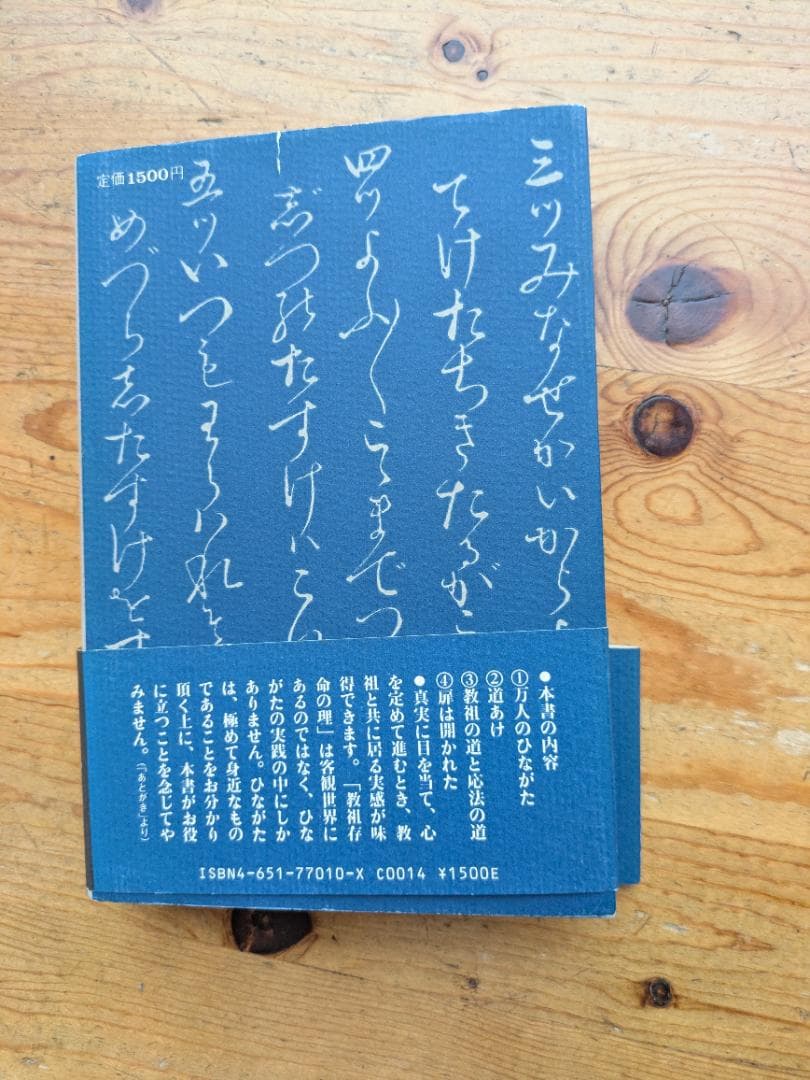 定価1500円
三ツみなせかいがよ
てけたちきたるがこ
四ツよふ〱こゝまでつ
じつのたすけハこれ
五ツいつもわらハれそ
めづらしたすけをす
●本書の内容
①万人のひながた
②道あけ
③教祖の道と応法の道
④扉は開かれた
●真実に目を当て、心
を定めて進むとき、教
祖と共に居る実感が味
得できます。「教祖存
命の理」は客観世界に
あるのではなく、ひな
がたの実践の中にしか
ありません。ひながた
は、極めて身近なもの
であることをお分かり
頂く上に、本書がお役
に立つことを念じてや
みません。(「あとがき」より)
ISBN4-651-77010-X C0014 ¥1500E